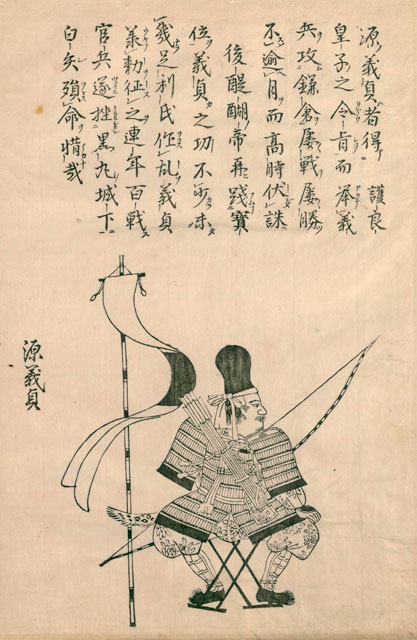 源義貞者得 護良
皇子之令旨而举義
兵攻鎌倉屡戦屡勝
不逾月而高時伏誅
後醍醐帝再踐寳
位義貞之功不少未
幾足利氏作乱義貞
勅征之連年百戦
官兵遂挫黒丸城下
白矢殞命惜哉
源義貞